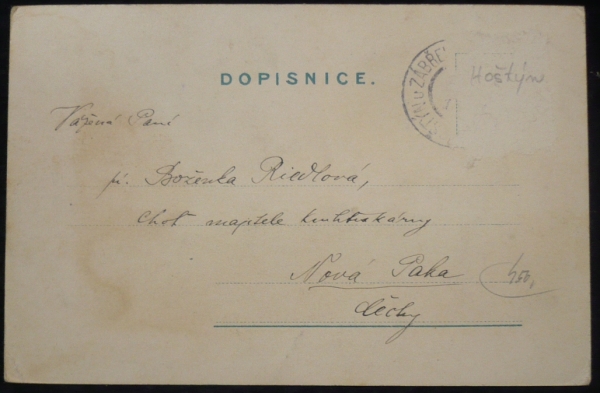 DOPISNICE.
U ZÁBŘE
Hoštýn
Vážená Paní
pí. Boženka Riedlová,
choť majitele knihtiskárny
Nová Paka
Čechy
450,